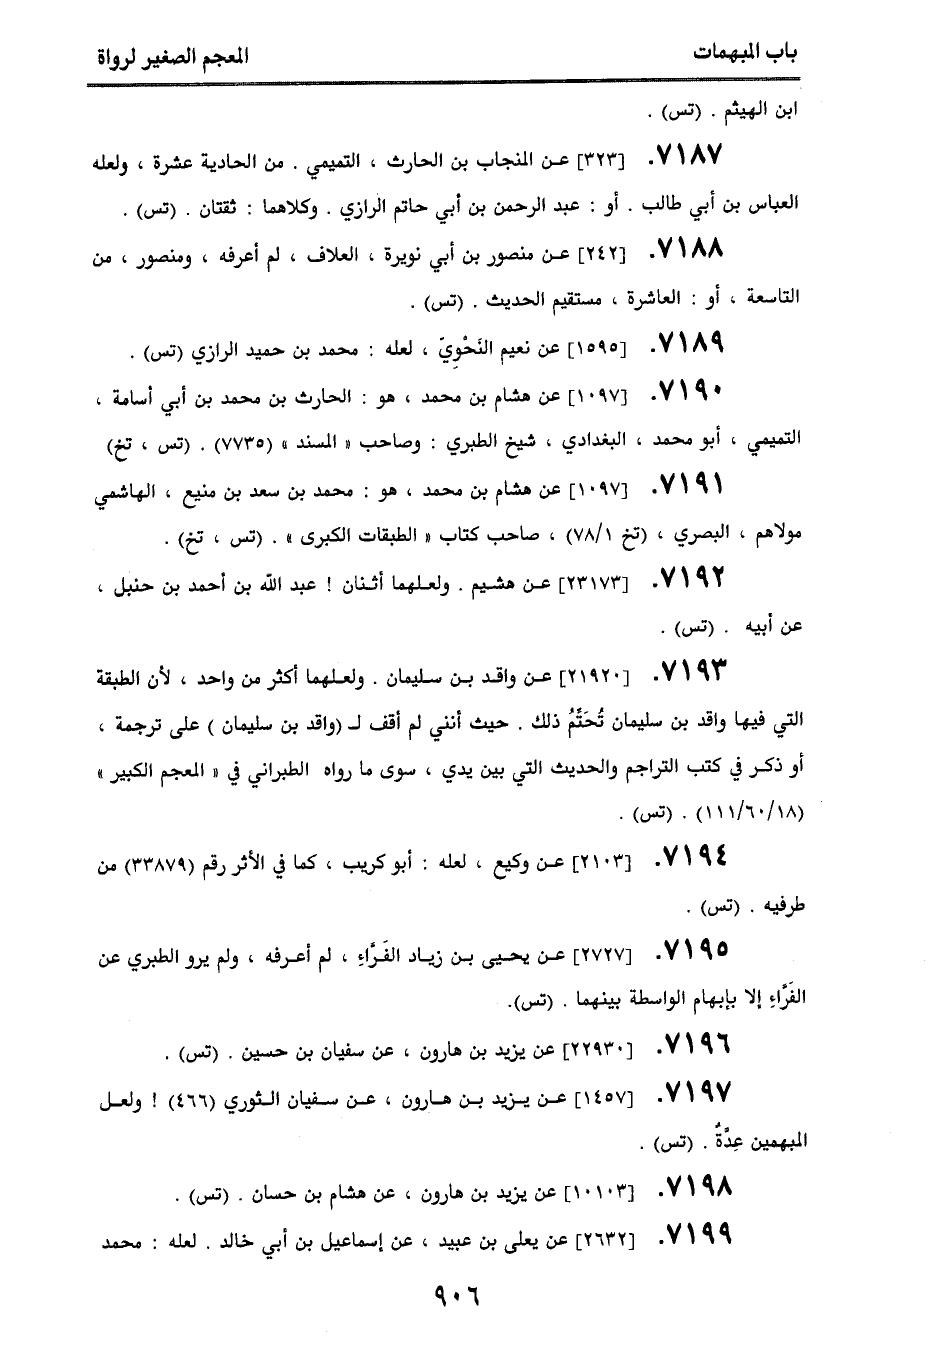 باب المبهمات
المعجم الصغير لرواة
ابن الهيثم . (تس) .
٧١٨٧. [٣٢٣] عن المنجاب بن الحارث ، التميمي . من الحادية عشرة ، ولعله
العباس بن أبي طالب . أو : عبد الرحمن بن أبي حاتم الرازي . وكلاهما : ثقتان . (تس) .
٧١٨٨. [٢٤٢] عن منصور بن أبي نويرة ، العلاف ، لم أعرفه ، ومنصور ، من
التاسعة ، أو : العاشرة ، مستقيم الحديث . (تس) .
٧١٨٩. [١٥٩٥] عن نعيم النَحْوِيّ ، لعله : محمد بن حميد الرازي (تس) .
٧١٩٠. [١٠٩٧] عن هشام بن محمد ، هو : الحارث بن محمد بن أبي أسامة ،
التميمي ، أبو محمد ، البغدادي ، شيخ الطبري : وصاحب « المسند » (٧٧٣٥) . (تس ، تخ)
٧١٩١. [١٠٩٧] عن هشام بن محمد ، هو : محمد بن سعد بن منيع ، الهاشمي
مولاهم ، البصري ، (تخ ٧٨/١) ، صاحب كتاب « الطبقات الكبرى » . (تس ، تخ) .
٧١٩٢. [٢٣١٧٣] عن هشيم . ولعلهما أثنان ! عبد الله بن أحمد بن حنبل ،
عن أبيه . (تس) .
٧١٩٣. [٢١٩٢٠] عن واقد بن سليمان . ولعلهما أكثر من واحد ، لأن الطبقة
التي فيها واقد بن سليمان تُحَتِّمُ ذلك . حيث أنني لم أقف لـ (واقد بن سليمان ) على ترجمة ،
أو ذكر في كتب التراجم والحديث التي بين يدي ، سوى ما رواه الطبراني في « المعجم الكبير »
(١١١/٦٠/١٨) . (تس) .
٧١٩٤. [٢١٠٣] عن وكيع ، لعله : أبو كريب ، كما في الأثر رقم (٣٣٨٧٩) من
طرفيه . (تس) .
٧١٩٥. [٢٧٢٧] عن يحيى بن زياد الفَرَّاءِ ، لم أعرفه ، ولم يرو الطبري عن
الفَرَّاءِ إلا بإبهام الواسطة بينهما . (تس).
٧١٩٦. [٢٢٩٣٠] عن يزيد بن هارون ، عن سفيان بن حسين . (تس) .
٧١٩٧. [١٤٥٧] عن يزيد بن هارون ، عن سفيان الثوري (٤٦٦) ! ولعل
المبهمين عِدَّةٌ . (تس) .
٧١٩٨. [١٠١٠٣] عن يزيد بن هارون ، عن هشام بن حسان . (تس) .
٧١٩٩. [٢٦٣٢] عن يعلى بن عبيد ، عن إسماعيل بن أبي خالد . لعله : محمد
٩٠٦